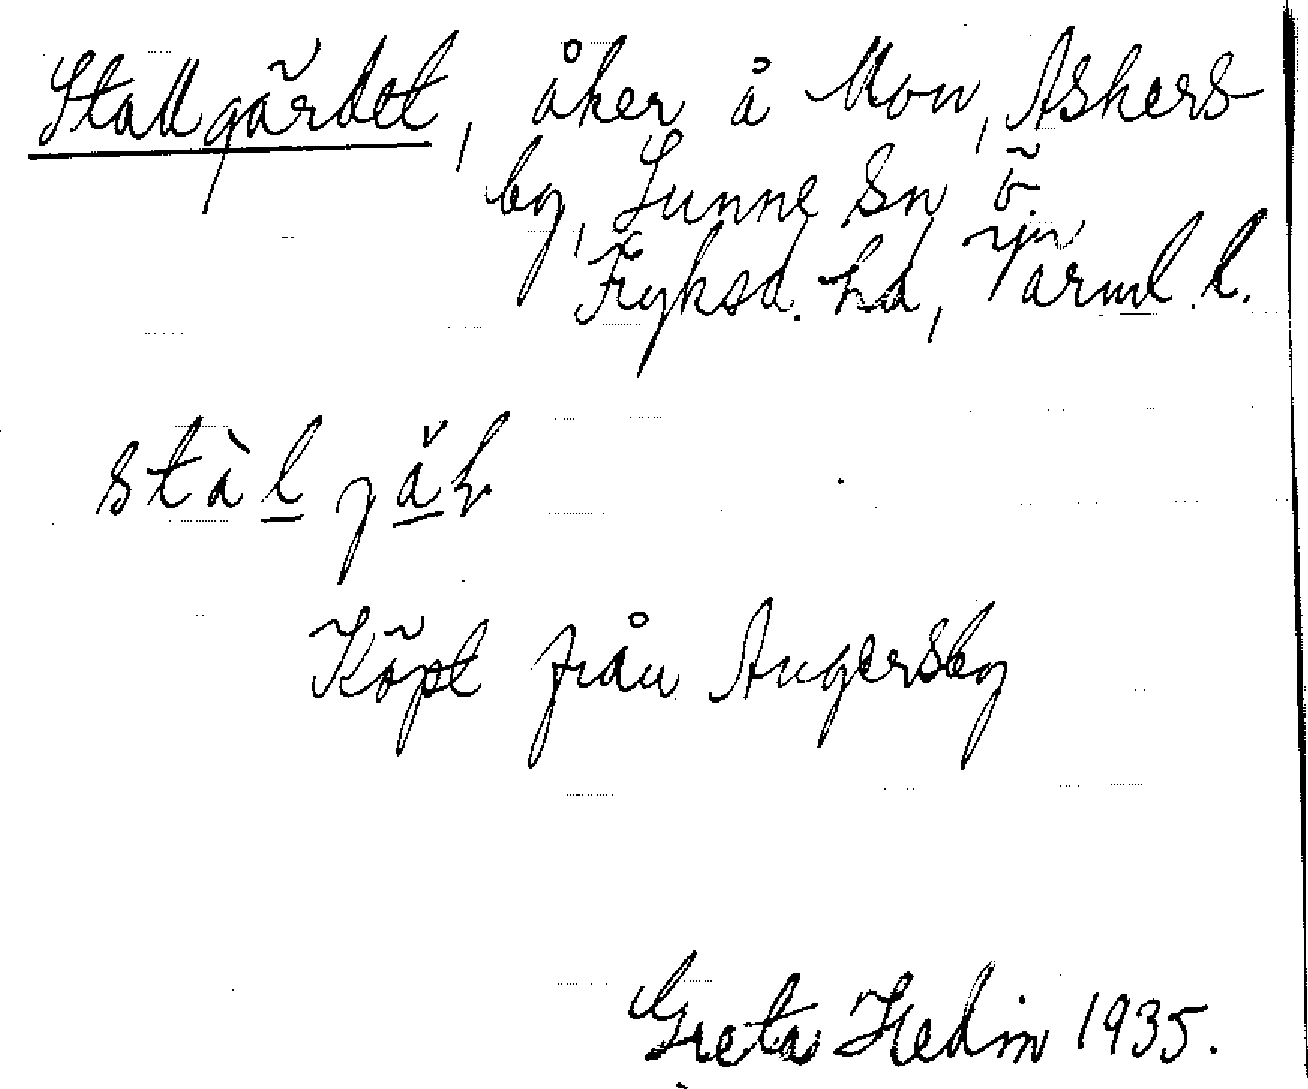 Stallgärdet, åker å Mon, Askers
by, Sunne sn ö
Fryksd. hd, Värml. l.
stàl jäl
Köpt från Angersby
Greta Hedin 1935.